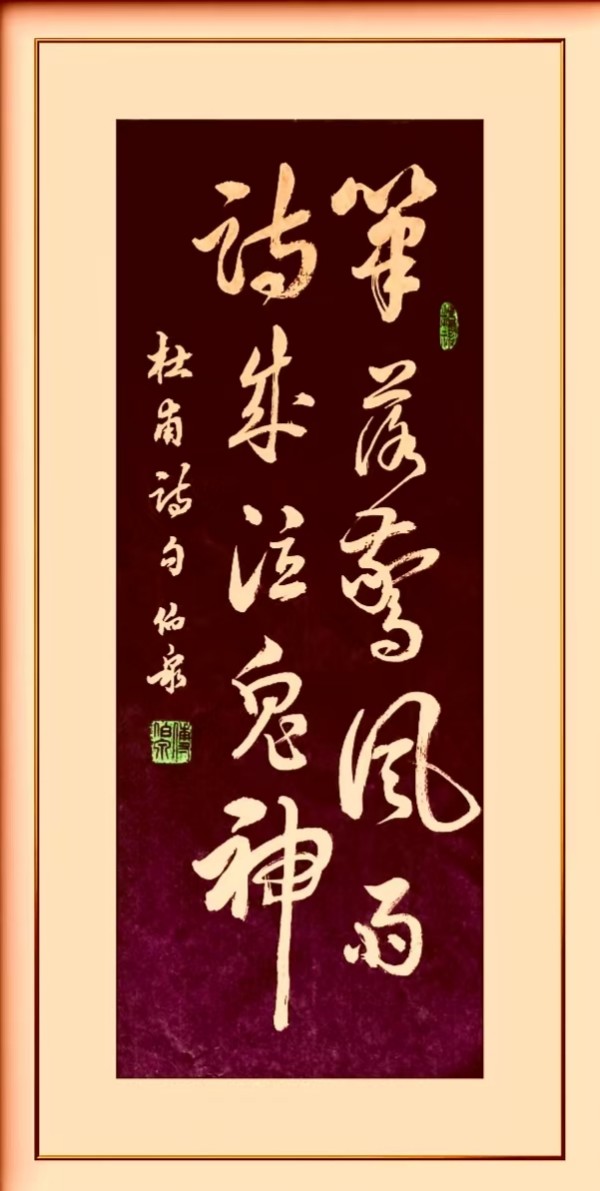 筆落驚風雨
詩成泣鬼神
杜甫詩句 伯泉